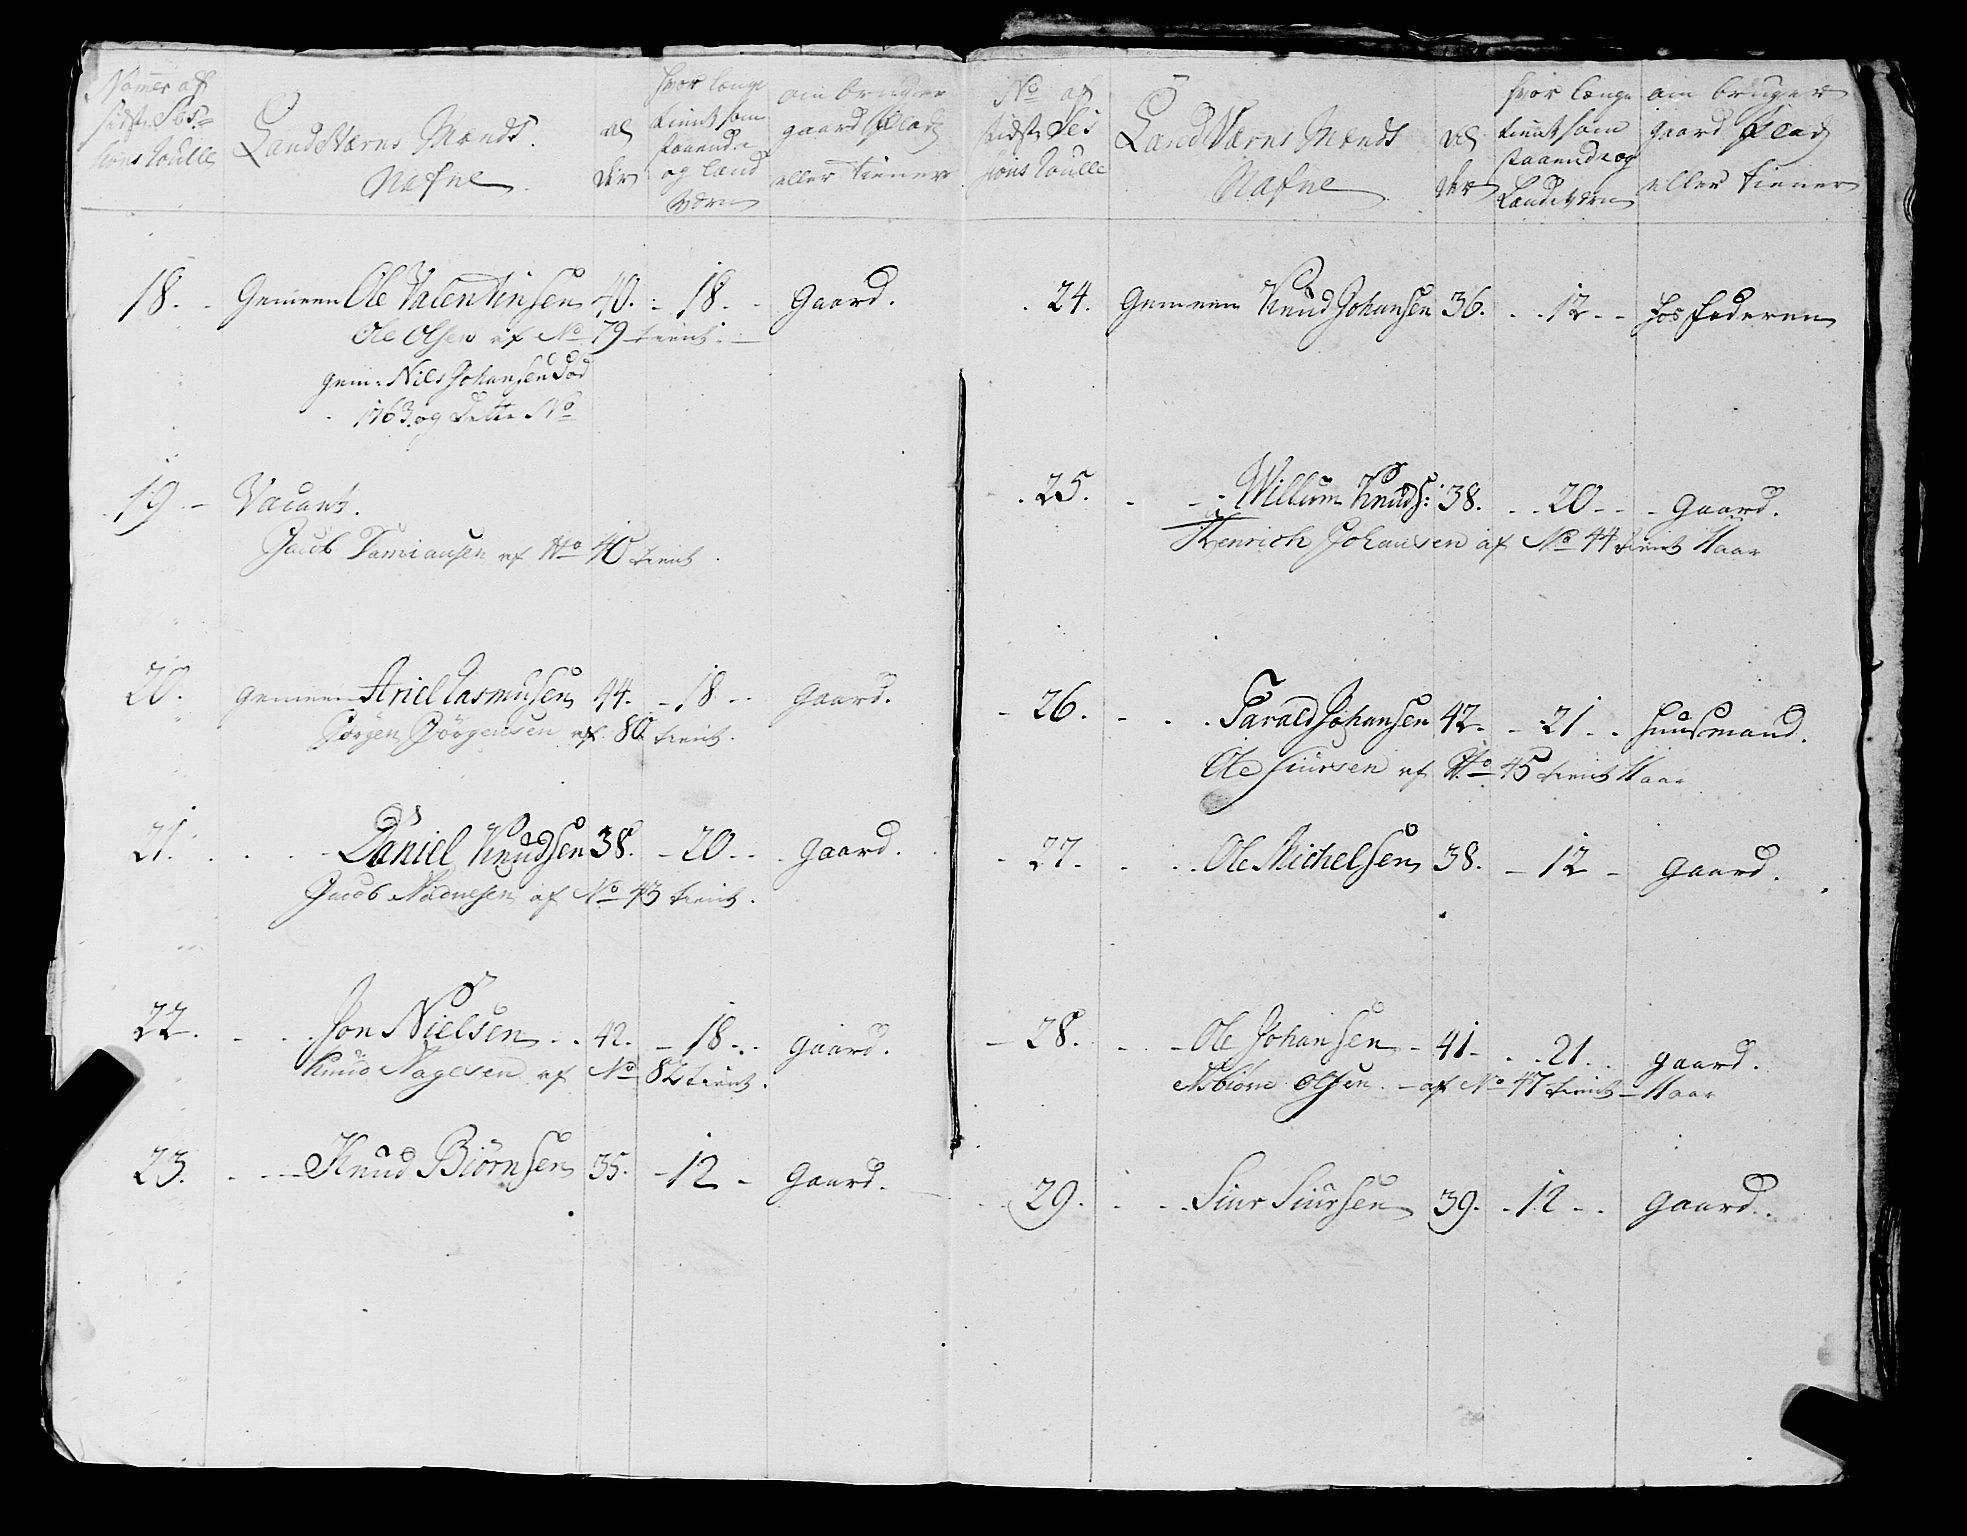 Nomer af
sidste Ses=
sions Roulle
LandVærns Mænds
Nafne
Al
der
hvor længe
tient som
staaende
og land
Værn
om bruger
gaard Plads
eller tiener
18. Gemeen Ole Valentinsen 40. 18. Gaard.
Ole Olsen af No 79 tient.
gem: Nils Johansen Död
1763. og dette No
19 Vacant.
Jacob Tamiansen af No 40 tient.
20. gemeen Ariel Rasmusen 44. 18 gaard.
Jörgen Jörgensen af 80 tient.
21. Daniel Knudsen 38. 20 gaard.
Jacob af No 43 tient.
22. Jon Nielsen 42. 18 gaard.
Knud Aagesen af No 82 tient.
23. Knud Biörnsen 35. 12 Gaard.
No af
sidste Ses
sions Roulle
LandVærns Mænds
Nafne
Al
der
hvor længe
tient som
staaende og
Landeværn
om bruger
gaard Plads
eller tiener
24. Gemeen Knud Johansen 36. 12 hos faderen
25. Willum Knuds: 38. 20 Gaard.
Henrich Johansen af No 44 tient 11 aar
26. Tarald Johansen 42. 21 huusmand.
Ole Siursen af No 45 tient 11 aar
27. Ole Michelsen 38. 12 gaard.
28. Ole Johansen 41. 21. gaard.
Asbiörn Olsen af No 47 tient 11 aar
29. Siur Siursen 39. 12 gaard.